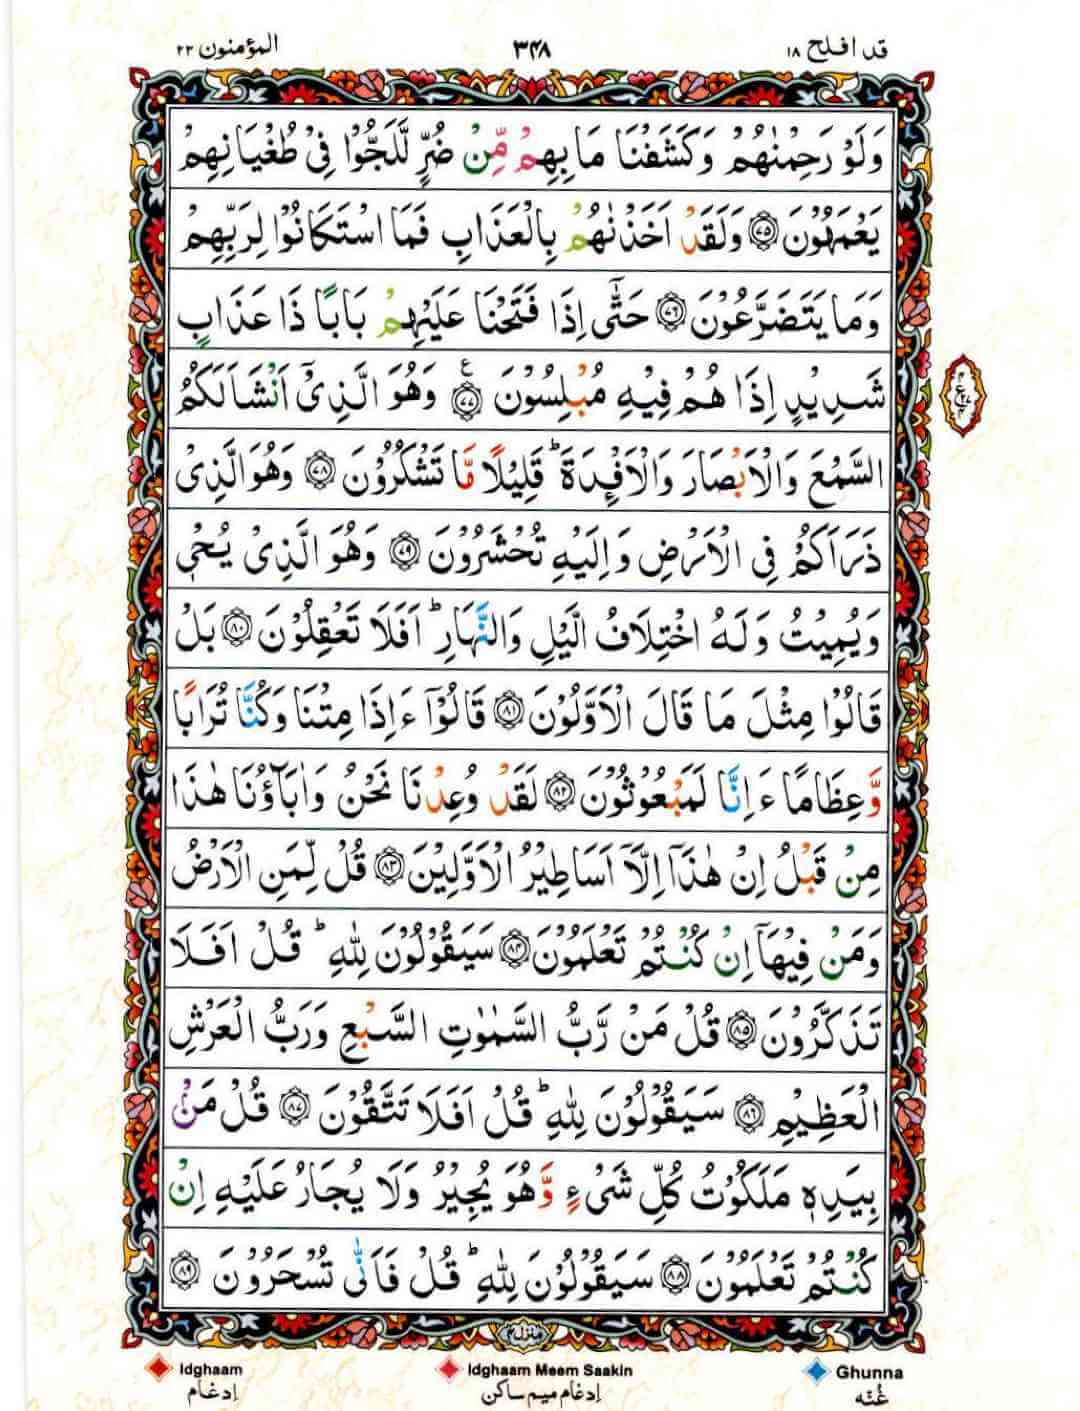 قد افلح ۱۸
۳۴۸
المؤمنون ۲۳
وَلَوْ رَحِمْنٰهُمْ وَكَشَفْنَا مَا بِهِمْ مِّنْ ضُرٍّ لَّلَجُّوْا فِيْ طُغْيَانِهِمْ
يَعْمَهُوْنَ ۝۷۵ وَلَقَدْ اَخَذْنٰهُمْ بِالْعَذَابِ فَمَا اسْتَكَانُوْا لِرَبِّهِمْ
وَمَا يَتَضَرَّعُوْنَ ۝۷۶ حَتّٰۤى اِذَا فَتَحْنَا عَلَيْهِمْ بَابًا ذَا عَذَابٍ
شَدِيْدٍ اِذَا هُمْ فِيْهِ مُبْلِسُوْنَ ۝۷۷ ع وَهُوَ الَّذِيْۤ اَنْشَاَ لَكُمُ
السَّمْعَ وَالْاَبْصَارَ وَالْاَفْـِٕدَةَ ؕ قَلِيْلًا مَّا تَشْكُرُوْنَ ۝۷۸ وَهُوَ الَّذِيْ
ذَرَاَكُمْ فِي الْاَرْضِ وَاِلَيْهِ تُحْشَرُوْنَ ۝۷۹ وَهُوَ الَّذِيْ يُحْيٖ
وَيُمِيْتُ وَلَهُ اخْتِلَافُ الَّيْلِ وَالنَّهَارِ ؕ اَفَلَا تَعْقِلُوْنَ ۝۸۰ بَلْ
قَالُوْا مِثْلَ مَا قَالَ الْاَوَّلُوْنَ ۝۸۱ قَالُوْۤا ءَاِذَا مِتْنَا وَكُنَّا تُرَابًا
وَّعِظَامًا ءَاِنَّا لَمَبْعُوْثُوْنَ ۝۸۲ لَقَدْ وُعِدْنَا نَحْنُ وَاٰبَآؤُنَا هٰذَا
مِنْ قَبْلُ اِنْ هٰذَاۤ اِلَّاۤ اَسَاطِيْرُ الْاَوَّلِيْنَ ۝۸۳ قُلْ لِّمَنِ الْاَرْضُ
وَمَنْ فِيْهَاۤ اِنْ كُنْتُمْ تَعْلَمُوْنَ ۝۸۴ سَيَقُوْلُوْنَ لِلّٰهِ ؕ قُلْ اَفَلَا
تَذَكَّرُوْنَ ۝۸۵ قُلْ مَنْ رَّبُّ السَّمٰوٰتِ السَّبْعِ وَرَبُّ الْعَرْشِ
الْعَظِيْمِ ۝۸۶ سَيَقُوْلُوْنَ لِلّٰهِ ؕ قُلْ اَفَلَا تَتَّقُوْنَ ۝۸۷ قُلْ مَنْۢ
بِيَدِهٖ مَلَكُوْتُ كُلِّ شَيْءٍ وَّهُوَ يُجِيْرُ وَلَا يُجَارُ عَلَيْهِ اِنْ
كُنْتُمْ تَعْلَمُوْنَ ۝۸۸ سَيَقُوْلُوْنَ لِلّٰهِ ؕ قُلْ فَاَنّٰى تُسْحَرُوْنَ ۝۸۹
Idghaam
ادغام
Idghaam Meem Saakin
ادغام میم ساکن
Ghunna
غُنّه